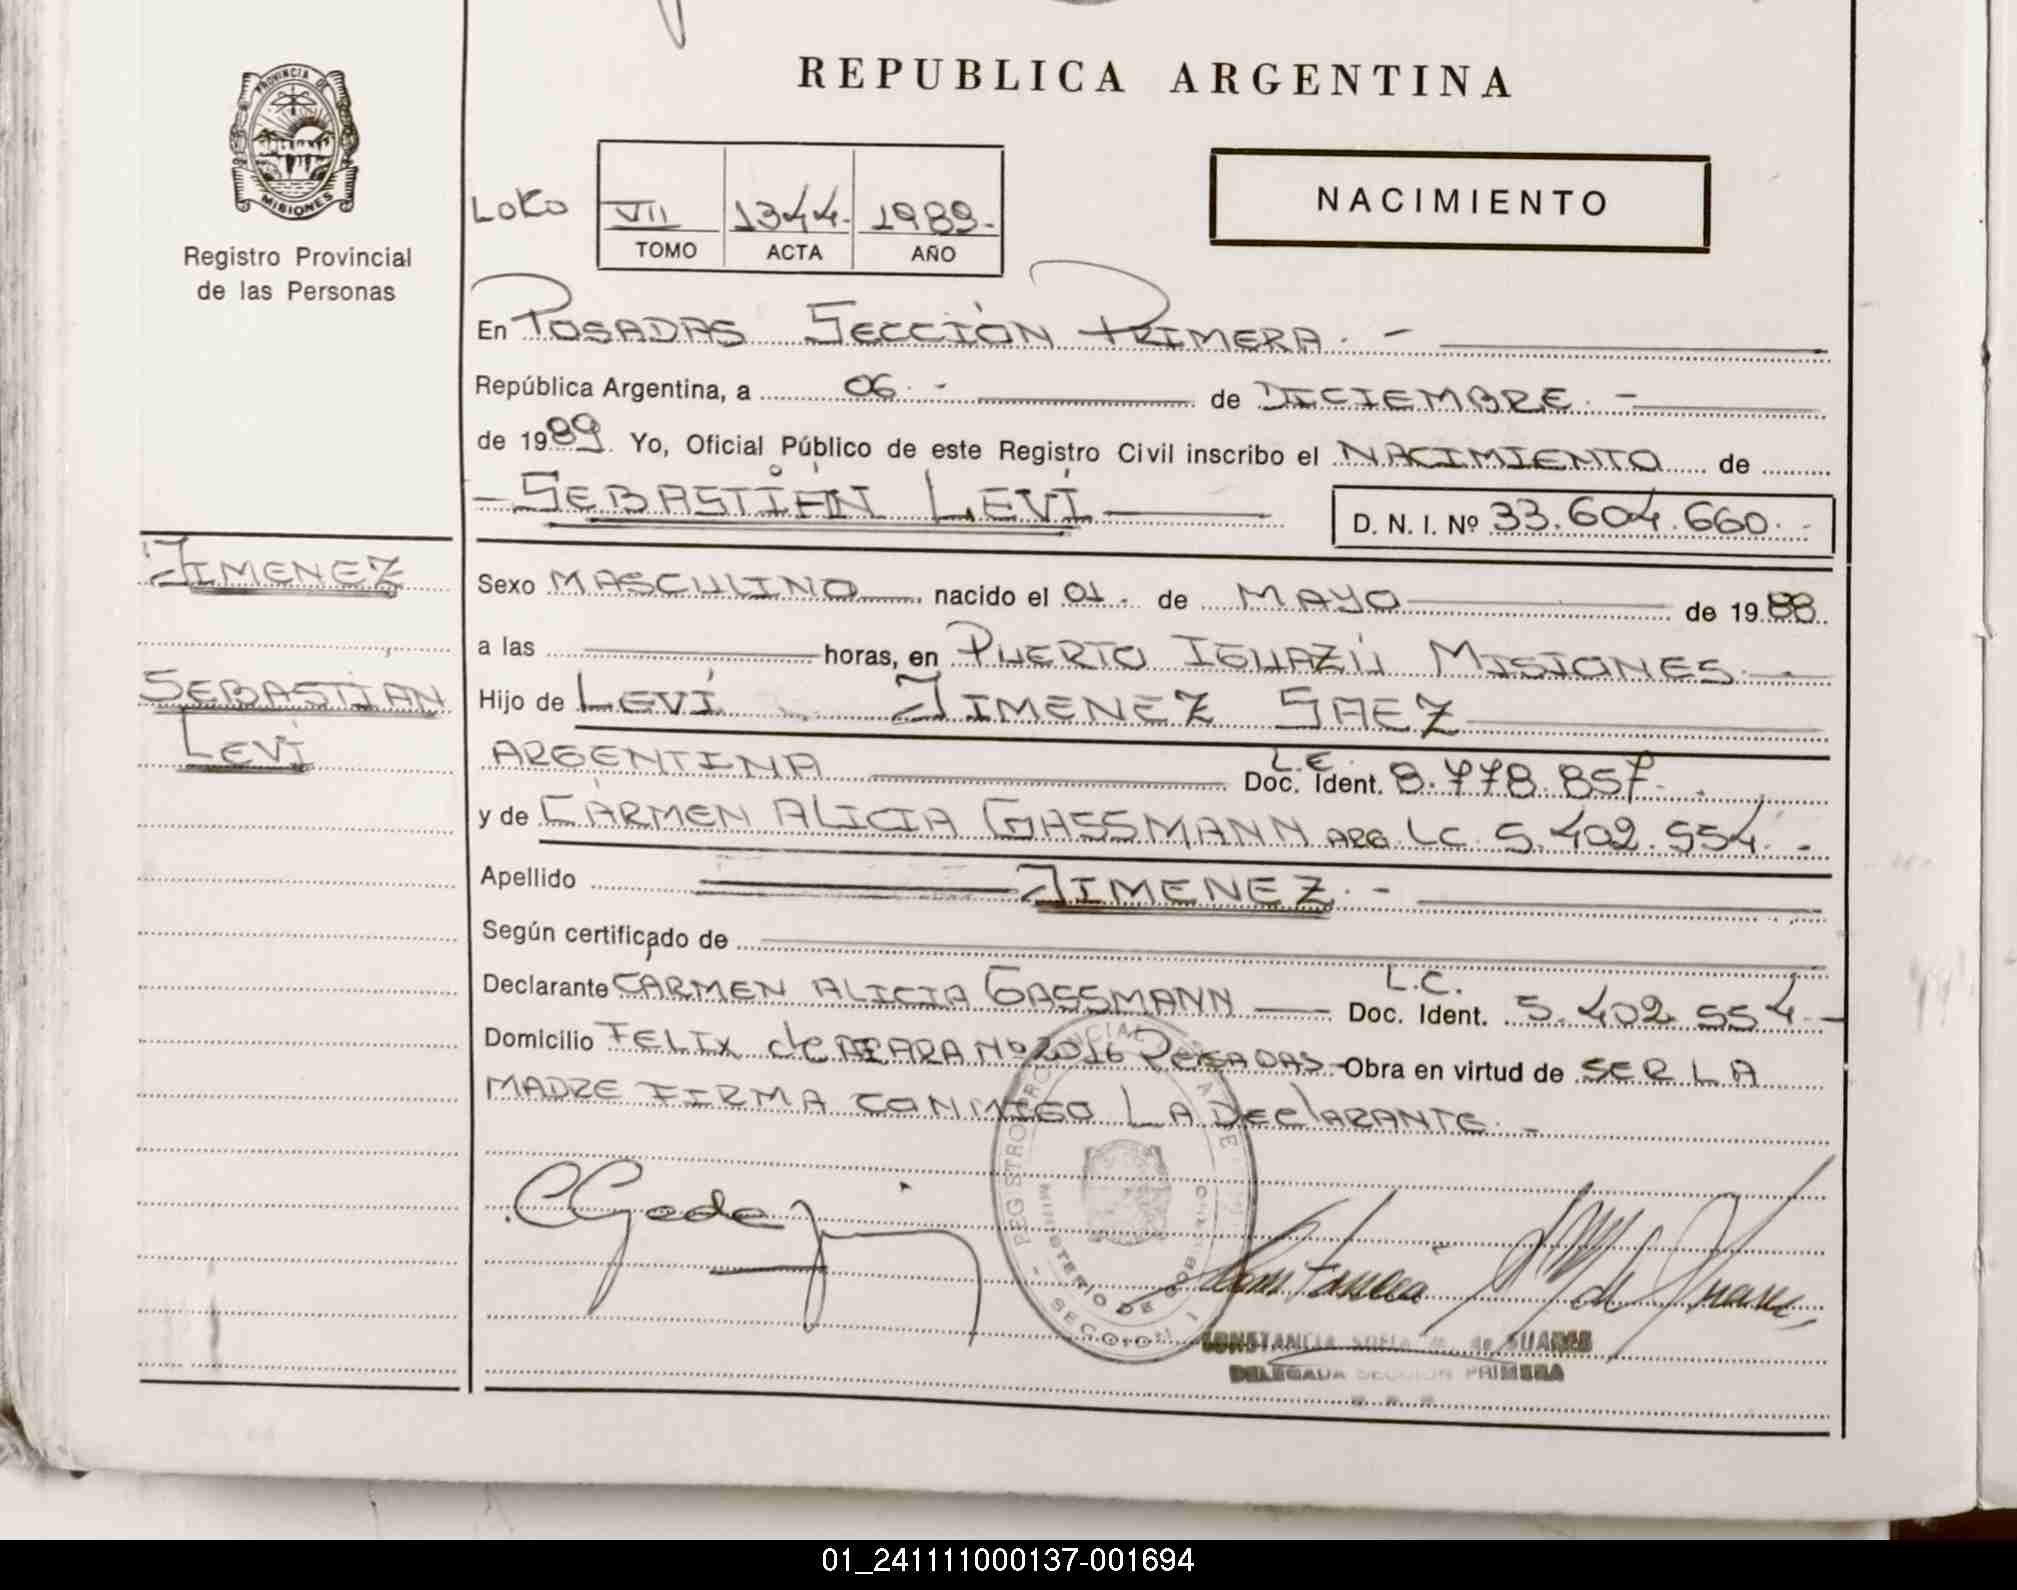 REPUBLICA ARGENTINA
PROVINCIA DE
MISIONES
Registro Provincial
de las Personas
LOKO
VII 1344- 1989-
TOMO ACTA AÑO
NACIMIENTO
En POSADAS SECCIÓN PRIMERA. -
República Argentina, a 06. - de DICIEMBRE. -
de 1989. Yo, Oficial Público de este Registro Civil inscribo el NACIMIENTO de
- SEBASTIÁN LEVÍ
D. N. I. Nº 33.604.660. -
JIMENEZ
SEBASTIAN
LEVÍ
Sexo MASCULINO nacido el 01. de MAYO de 1988.
a las horas, en PUERTO IGUAZÚ MISIONES. -
Hijo de LEVÍ JIMENEZ SAEZ
ARGENTINA L.E. Doc. Ident. 8.778.857. -
y de CARMEN ALICIA GASSMANN ARG. LC. 5.402.554. -
Apellido JIMENEZ. -
Según certificado de
Declarante CARMEN ALICIA GASSMANN L.C. Doc. Ident. 5.402.554 -
Domicilio FELIX de AZARA Nº 2016 POSADAS - Obra en virtud de SER LA
MADRE FIRMA CONMIGO LA DECLARANTE. -
SECCION I
CONSTANCIA de SUARES
DELEGADA SECCION PRIMERA
01_241111000137-001694